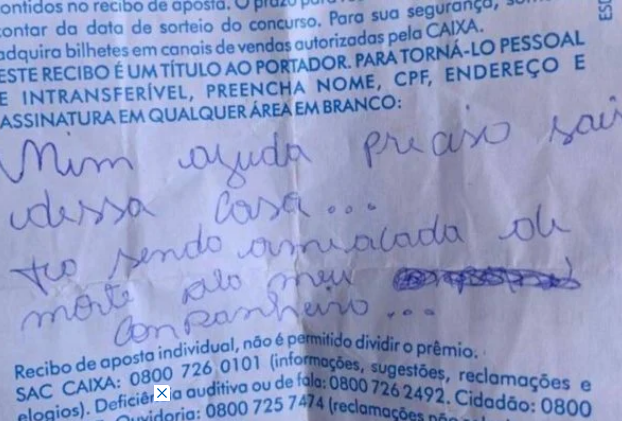 contidos no recibo de aposta. O prazo para
contar da data de sorteio do concurso. Para sua segurança, som
adquira bilhetes em canais de vendas autorizadas pela CAIXA.
ESTE RECIBO É UM TÍTULO AO PORTADOR. PARA TORNÁ-LO PESSOAL
E INTRANSFERÍVEL, PREENCHA NOME, CPF, ENDEREÇO E
ASSINATURA EM QUALQUER ÁREA EM BRANCO:
Mim ajuda preciso sai
dessa casa...
to sendo ameacada de
morte pelo meu
companheiro...
Recibo de aposta individual, não é permitido dividir o prêmio.
SAC CAIXA: 0800 726 0101 (informações, sugestões, reclamações e
elogios). Deficiên a auditiva ou de fala: 0800 726 2492. Cidadão: 0800
Ouvidoria: 0800 725 7474 (reclamações não